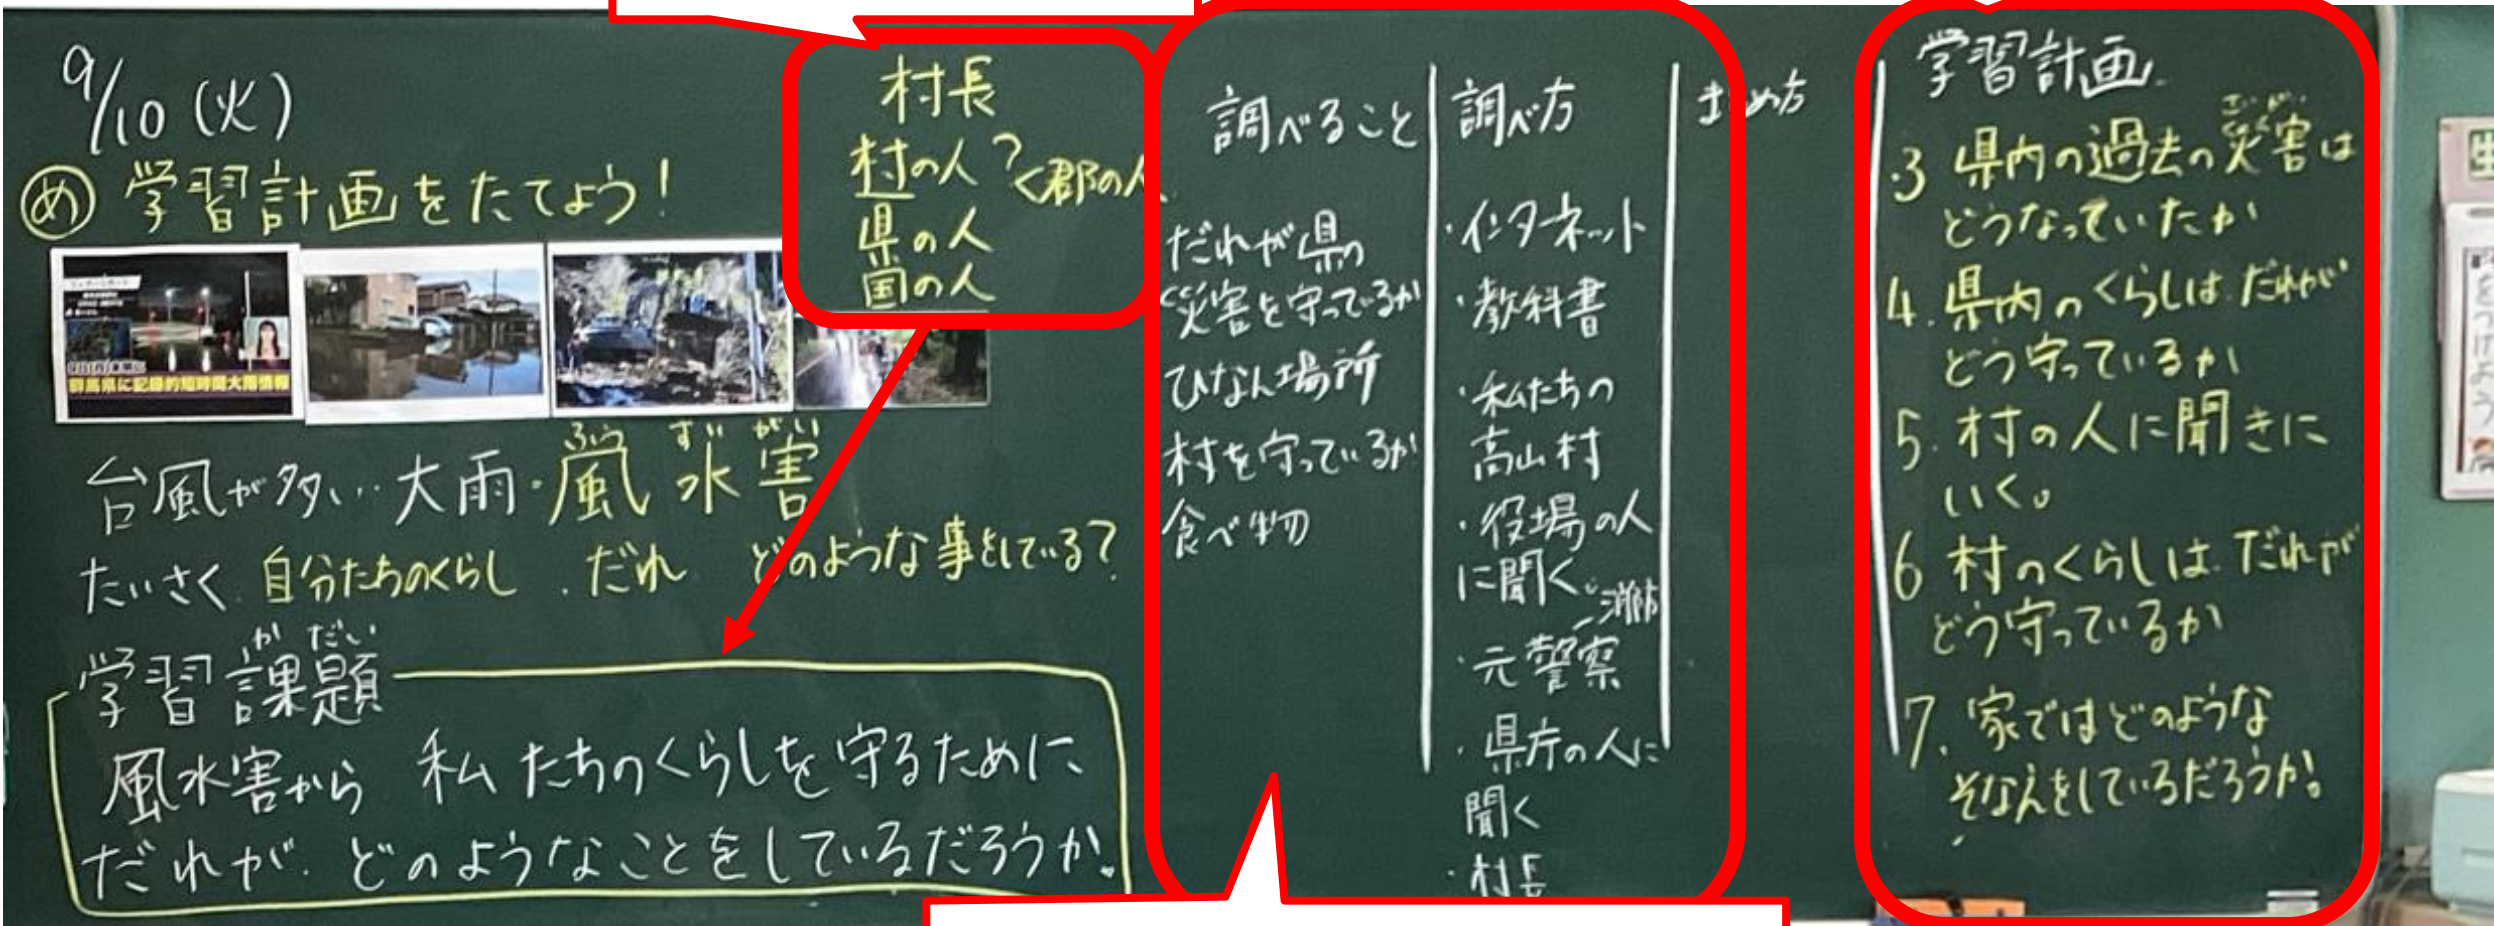 9/10(火)
め 学習計画をたてよう!
群馬県に記録的短時間大雨情報
村長
村の人?
<郡の人
県の人
国の人
台風が多い・大雨・風水害
ふう すい がい
たいさく 自分たちのくらし ・だれ どのような事をしている?
かだい
学習課題
風水害から 私たちのくらしを守るために
だれが どのようなことをしているだろうか。
調べること
だれが県の
災害を守っているか
ひなん場所
村を守っているか
食べ物
調べ方
・インターネット
・教科書
・私たちの
高山村
・役場の人
に聞く
消防
・元警察
・県庁の人に
聞く
・村長
まとめ方
学習計画
さいがい
・3 県内の過去の災害は
どうなっていたか
4. 県内のくらしは だれが
どう守っているか
5. 村の人に聞きに
いく。
6 村のくらしは だれが
どう守っているか
7. 家ではどのような
そなえをしているだろうか。
生
をつけよう